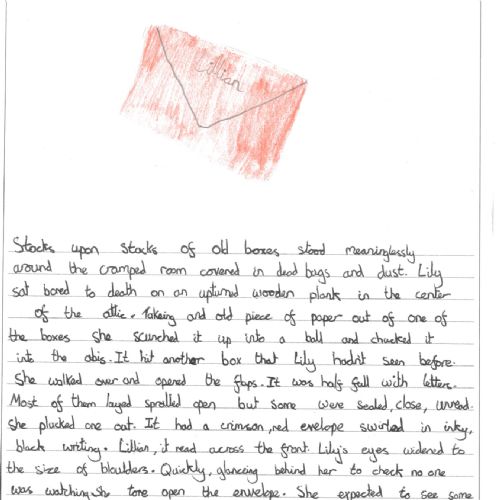 Lillian
Stacks upon stacks of old boxes stood meaninglessly
around the cramped room covered in dead bugs and dust. Lily
sat bored to death on an upturned wooden plank in the center
of the attic. Takeing and old piece of paper out of one of
the boxes she scunched it up into a ball and chucked it
into the abis. It hit another box that Lily hadn't seen before.
She walked over and opened the flaps. It was half full with letters.
Most of them layed spralled open but some were sealed, close, unread.
she plucked one out. It had a crimson, red envelope swirled in inky,
black writing. Lillian, it read across the front. Lily's eyes widened to
the size of bloulders. Quickly, glancing behind her to check no one
was watching she tore open the envelope. She expected to see some